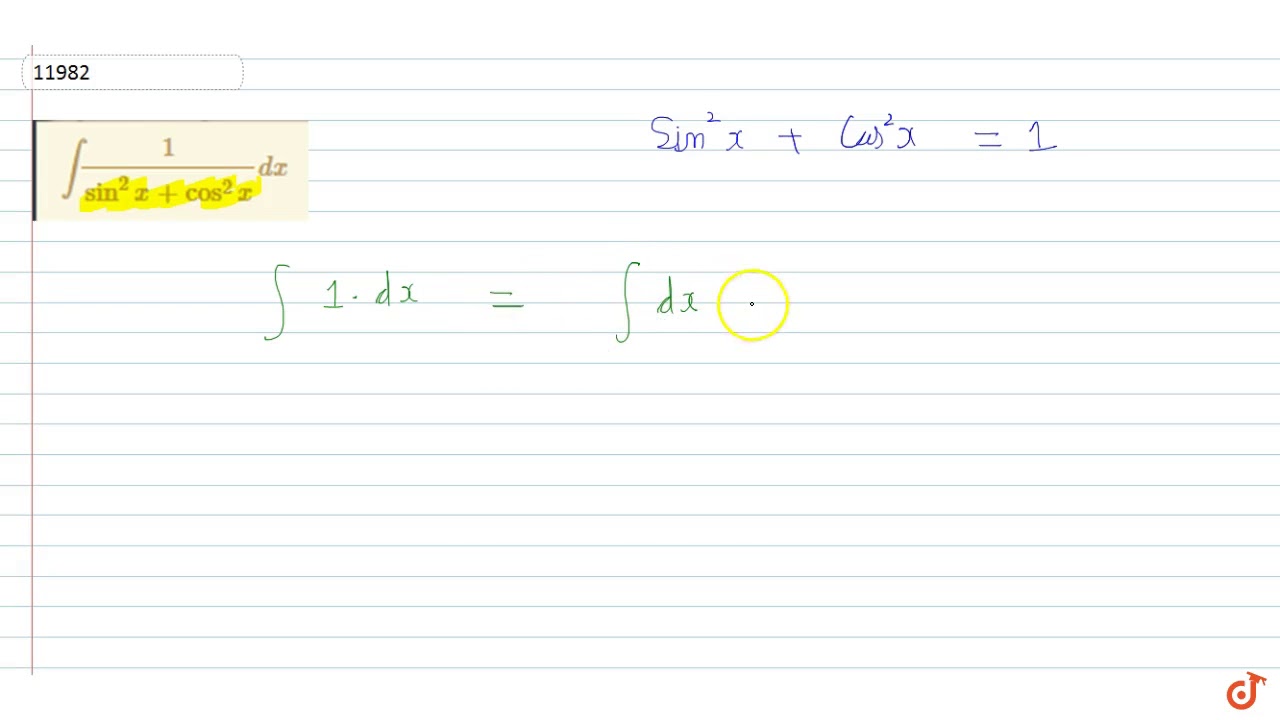 11982
∫ 1/(sin² x + cos² x) dx
Sin²x + Cos²x = 1
∫ 1. dx = ∫ dx